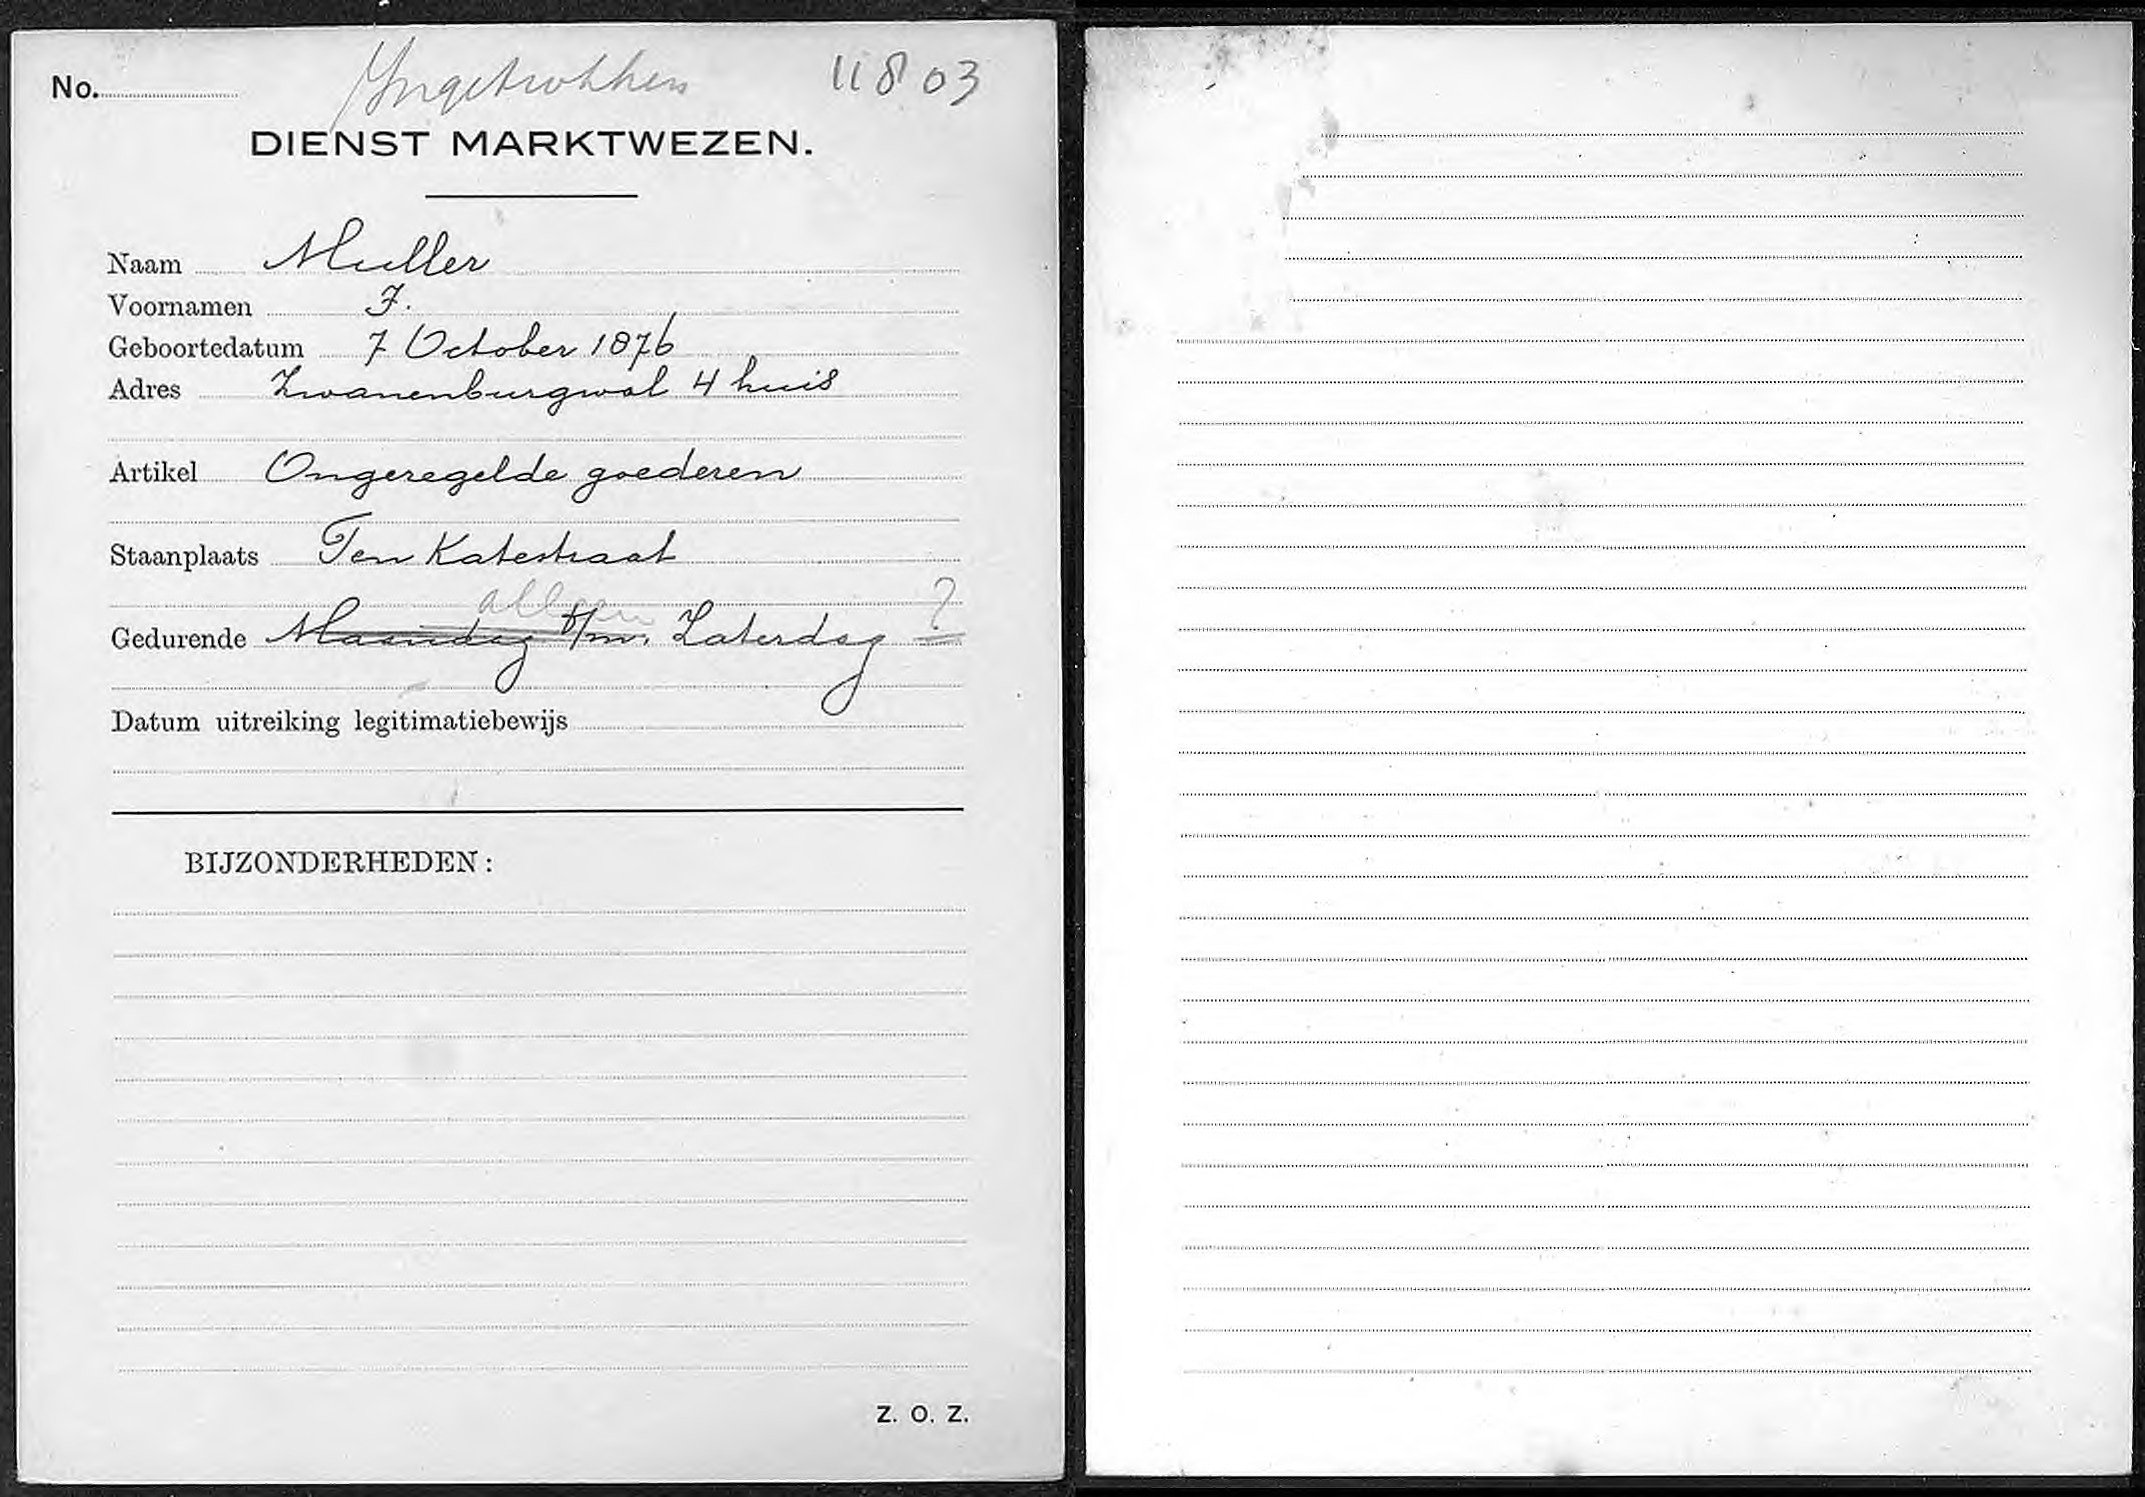 No. Ingetrokken 11803
DIENST MARKTWEZEN.
Naam Muller
Voornamen J.
Geboortedatum 7 October 1876
Adres Zwanenburgwal 4 huis
Artikel Ongeregelde goederen
Staanplaats Ten Katestraat
alleen ?
Gedurende Maandag t/m. Zaterdag
Datum uitreiking legitimatiebewijs
BIJZONDERHEDEN:
Z. O. Z.